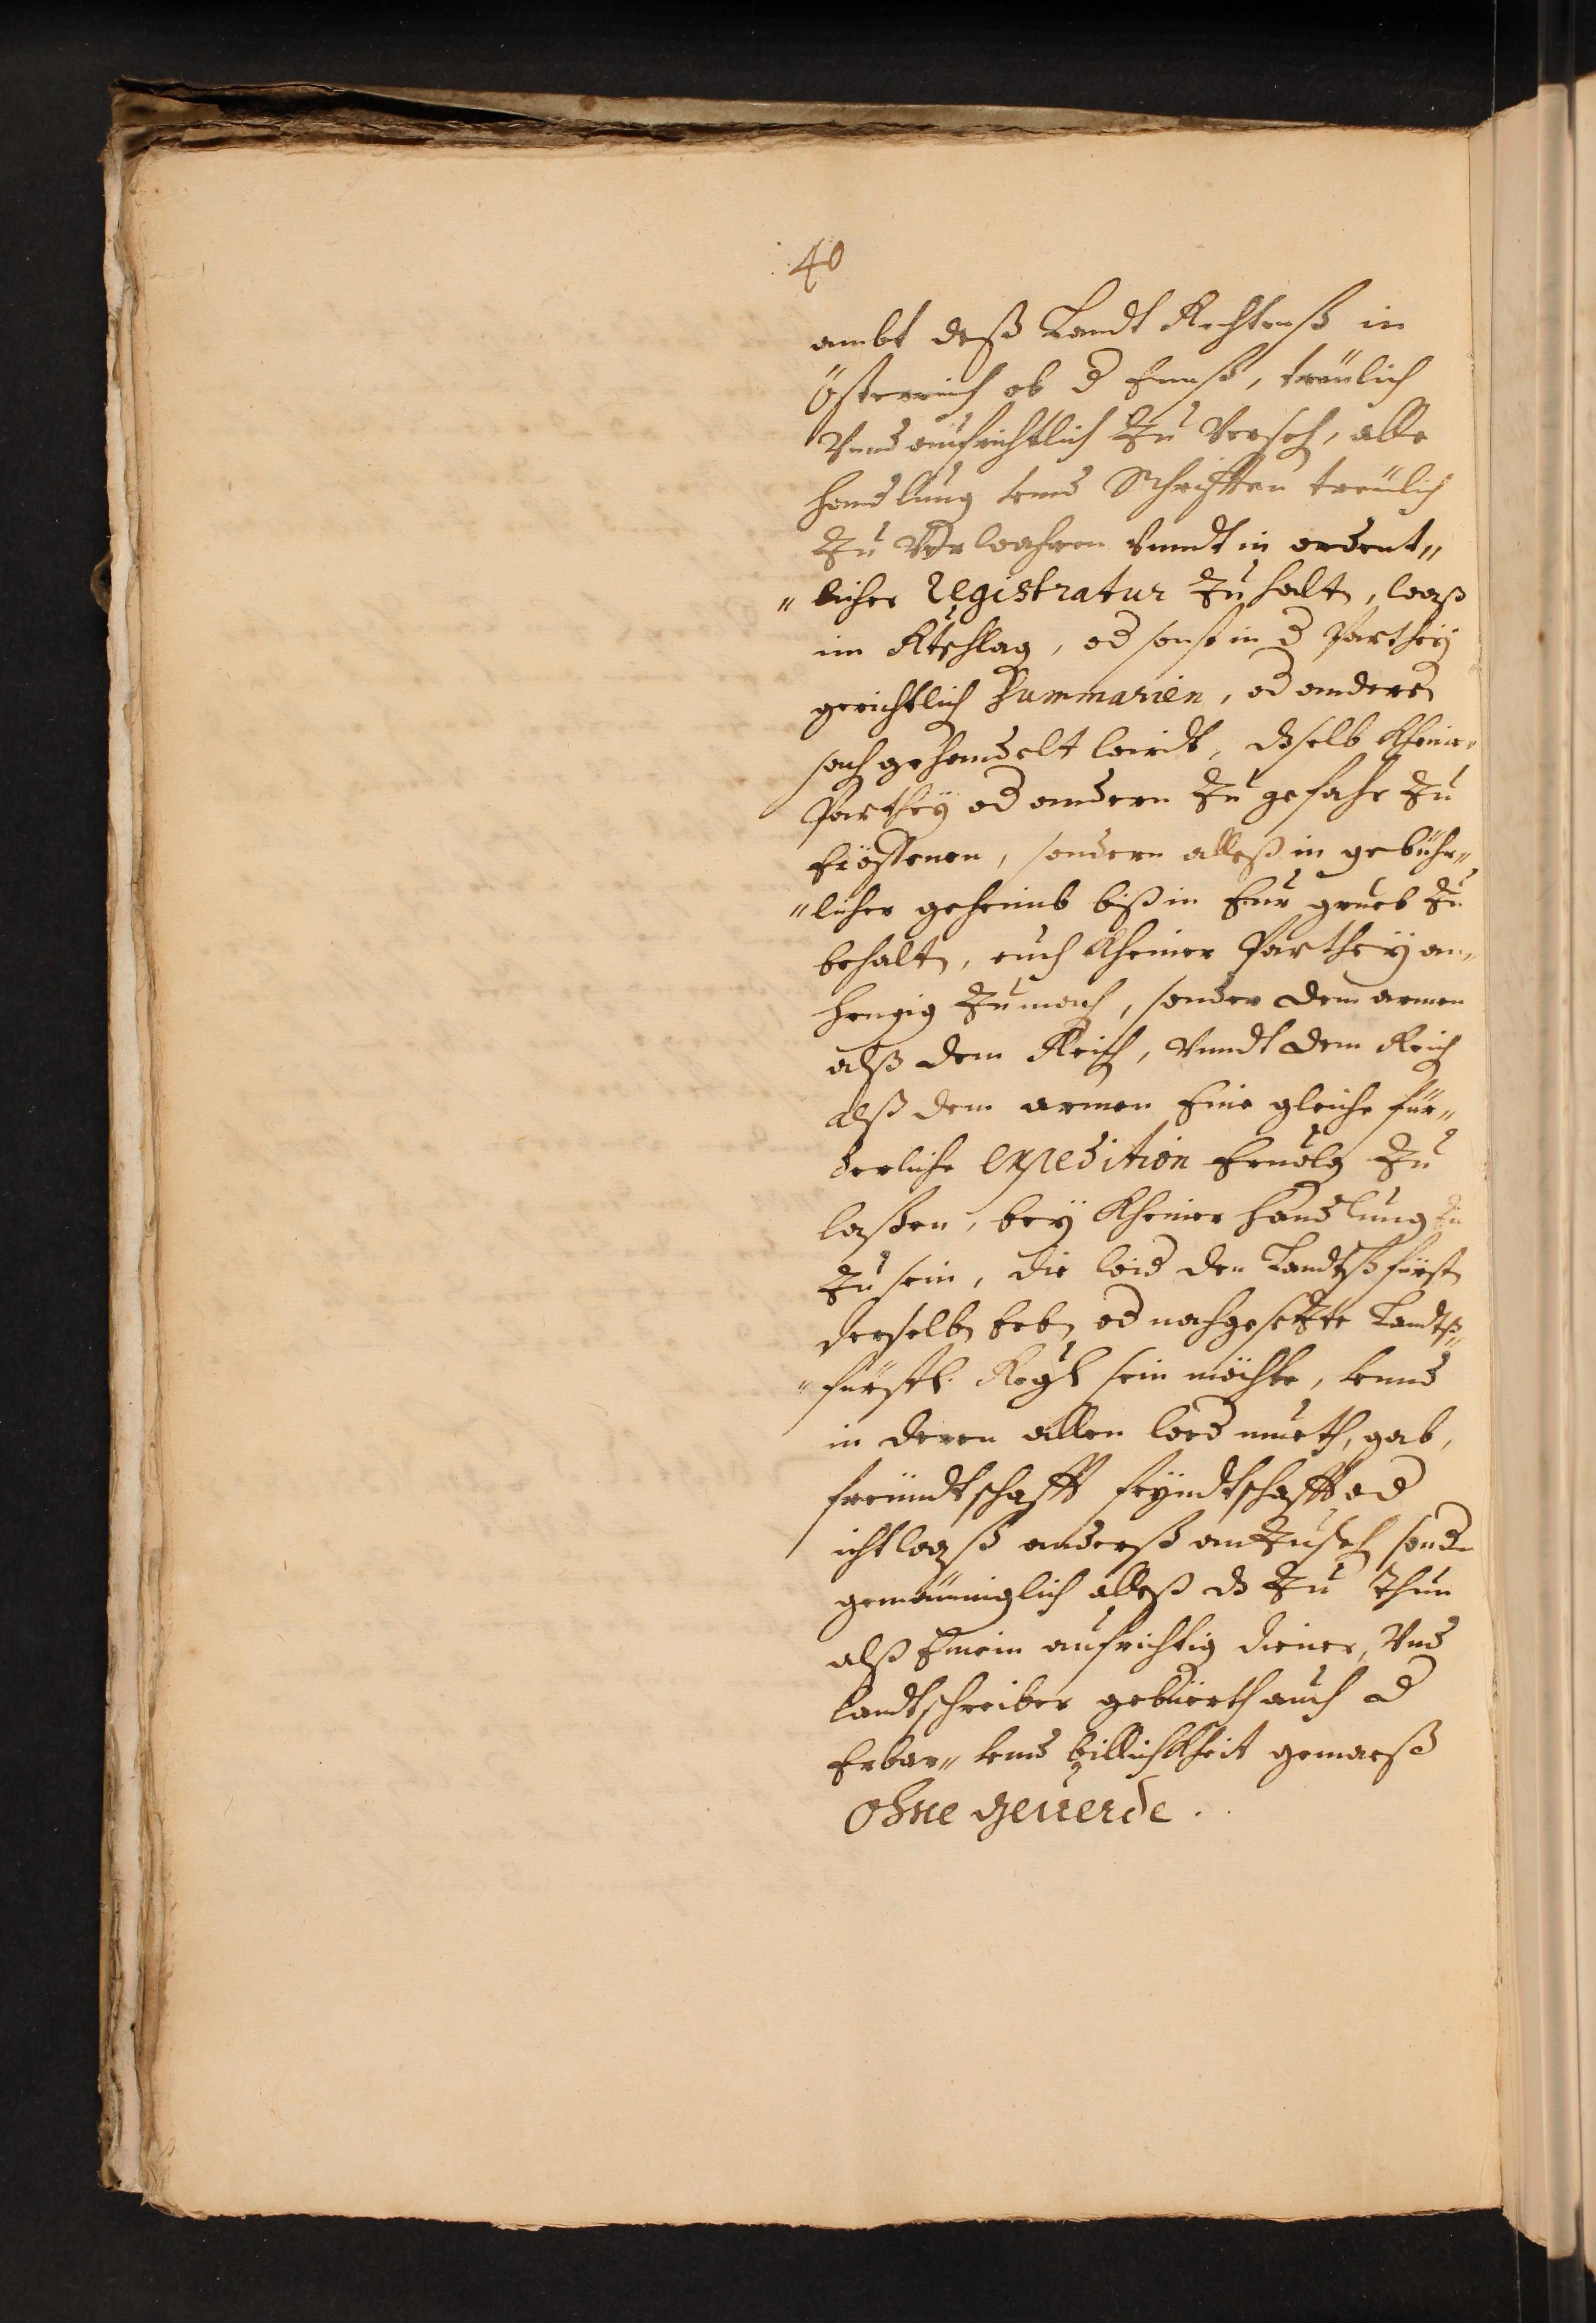 40
ambt deß Landt Rechtenß in
Österreich ob d Ennß, treülich
Vnnd aufrichtlich Zu Verseh, alle
handlung vnnd Schrifften treülich
Zu Verwahren Vnndt in ordent„
„licher Registratur Zu halt, waß
im Rtschlag, od sonst in d Parthey
gerichtlich Summarien, od andern
sach gehandelt wirdt, dselb Kheiner
Parthey od andern Zu gefahr Zu
Eröffenen, sondern alleß in gebühr„
„licher geheimb biß in Eur grueb Zu
behalt, auch Kheiner Parthey an„
hengig Zu mach, sonder dem armen
alß dem Reich, Vnndt dem Reich
alß dem armen Eine gleiche für„
derliche expedition Ervolg Zu
laßen, bey Kheiner handlung Zu
Zu sein, die wid den Landtßfürst
derselb Erb, od nachgesetzte Landtß„
„fürstl. Regt sein möchte, vnnd
in deren allen wed mueth, gab,
freündtschafft feyndtschafft od
ichtwaß anderß anZuseh sond
gemäinniglich alleß dZ Zu Thun
alß Einem aufrichtig diener, Vnd
landtschreiber gebüerth auch d
Erbar„ vnnd billichkheit gemaeß
Ohne geuerde.